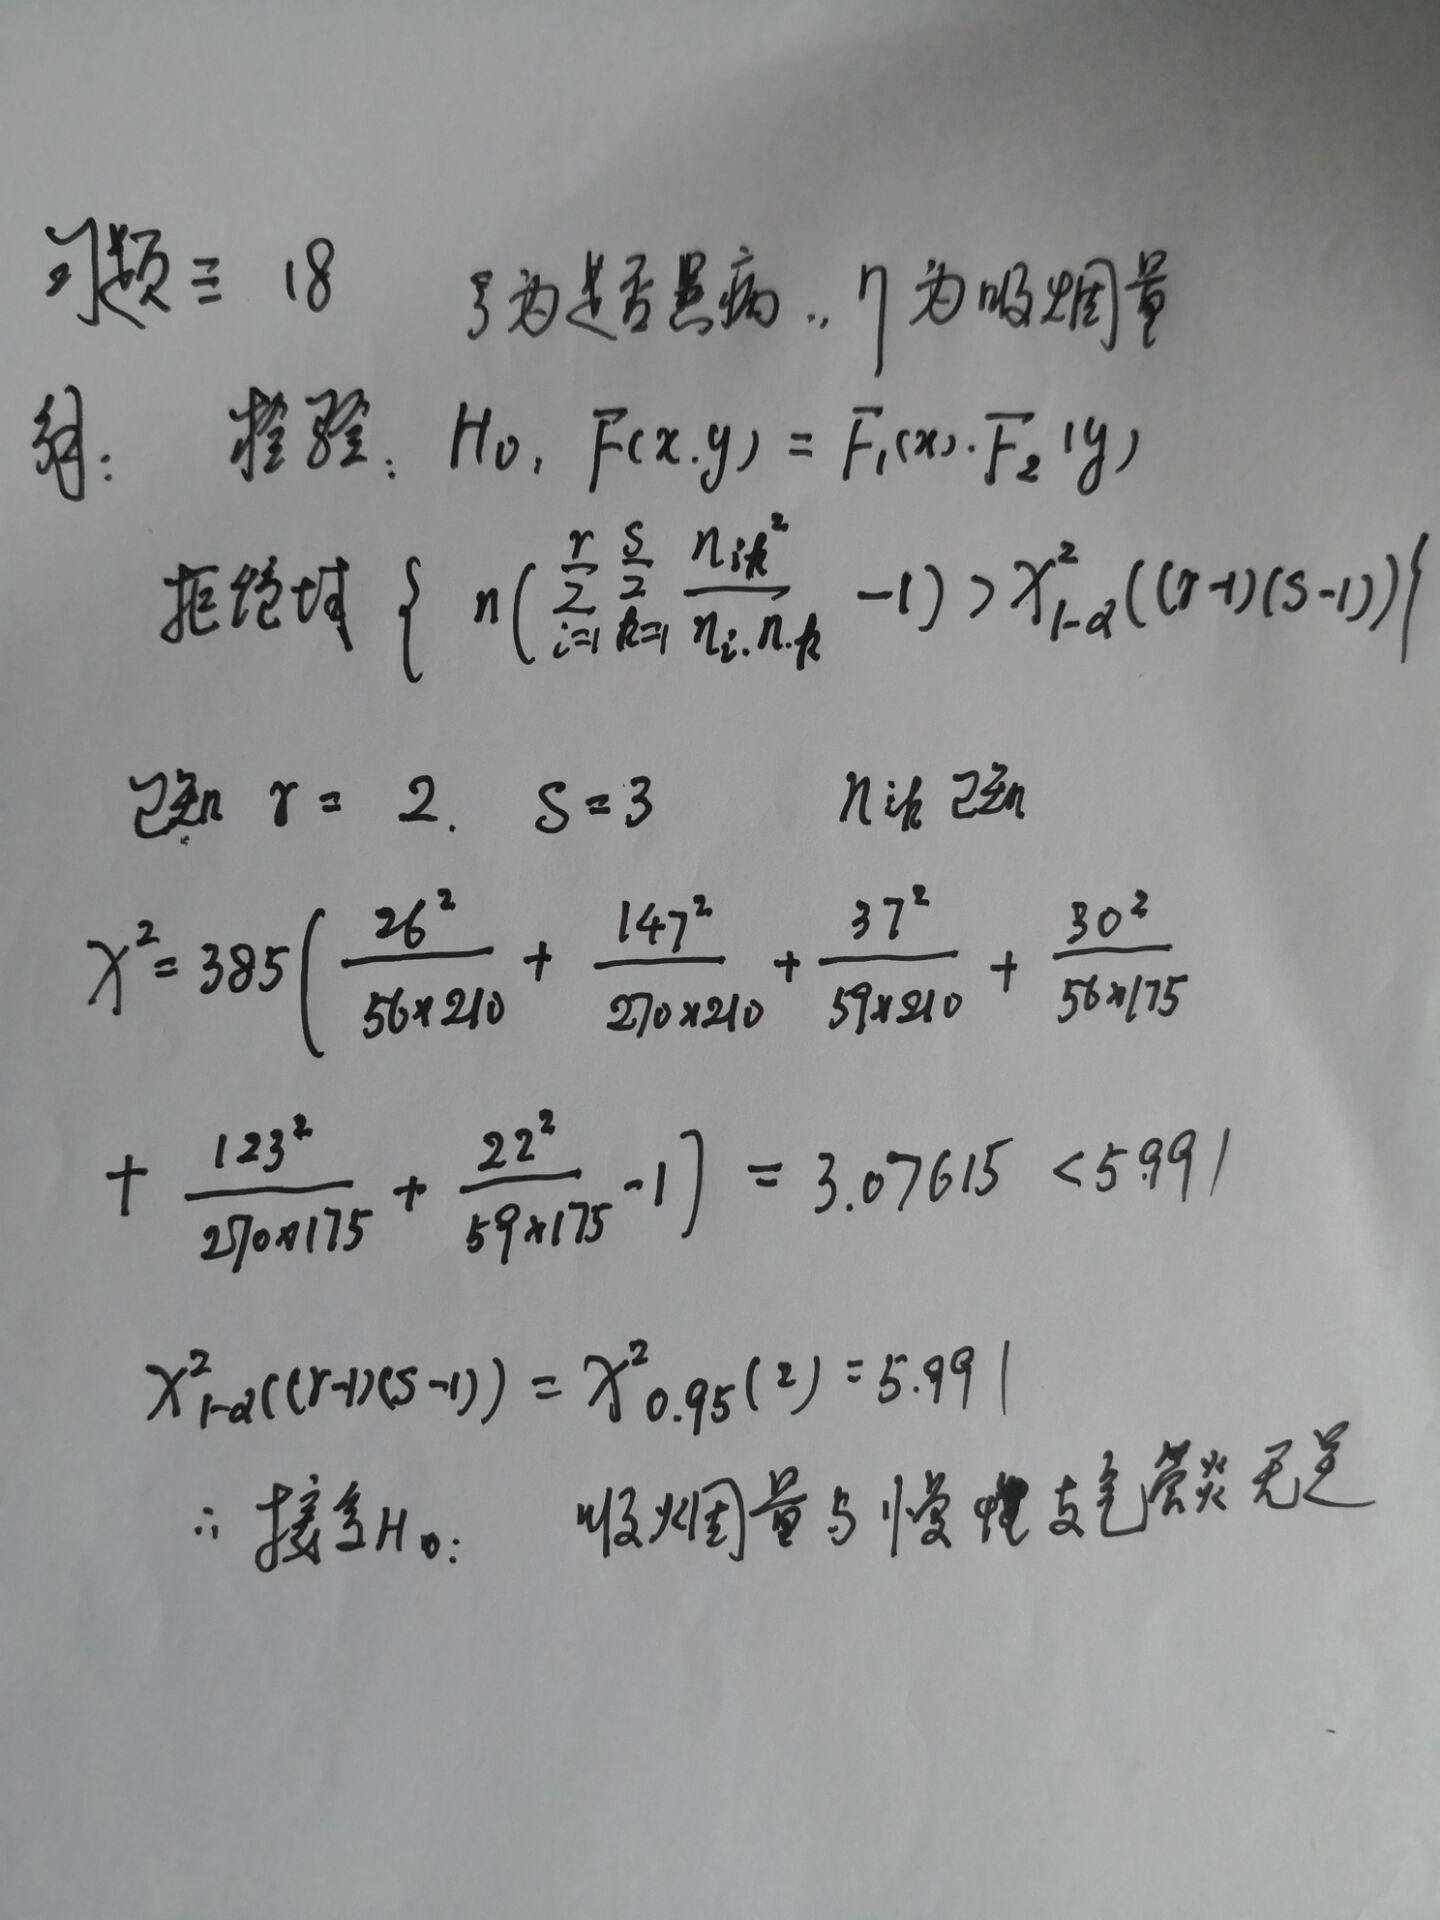 习题三 18 ξ为是否患病.. η为吸烟量
解: 检验: H₀, F(x.y) = F₁(x)·F₂(y)
拒绝域 { n(∑_{i=1}^{r} ∑_{k=1}^{s} n_{ik}²/(n_{i·}n_{·k}) -1) > χ²_{1-α}((r-1)(s-1)) }
已知 r = 2. s = 3 n_{ik} 已知
χ² = 385( 26²/(56×210) + 147²/(270×210) + 37²/(59×210) + 30²/(56×175)
+ 123²/(270×175) + 22²/(59×175) -1) = 3.07615 < 5.991
χ²_{1-α}((r-1)(s-1)) = χ²_{0.95}(2) = 5.991
∴ 接受H₀: 吸烟量与慢性支气管炎无关